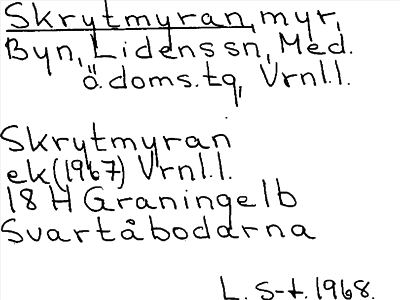 Skrytmyran, myr,
Byn, Lidens sn, Med.
ö. doms.tg, Vrnl.l.
Skrytmyran
ek (1967) Vrnl.l.
18 H Graninge 1b
Svartåbodarna
L. S-t. 1968.